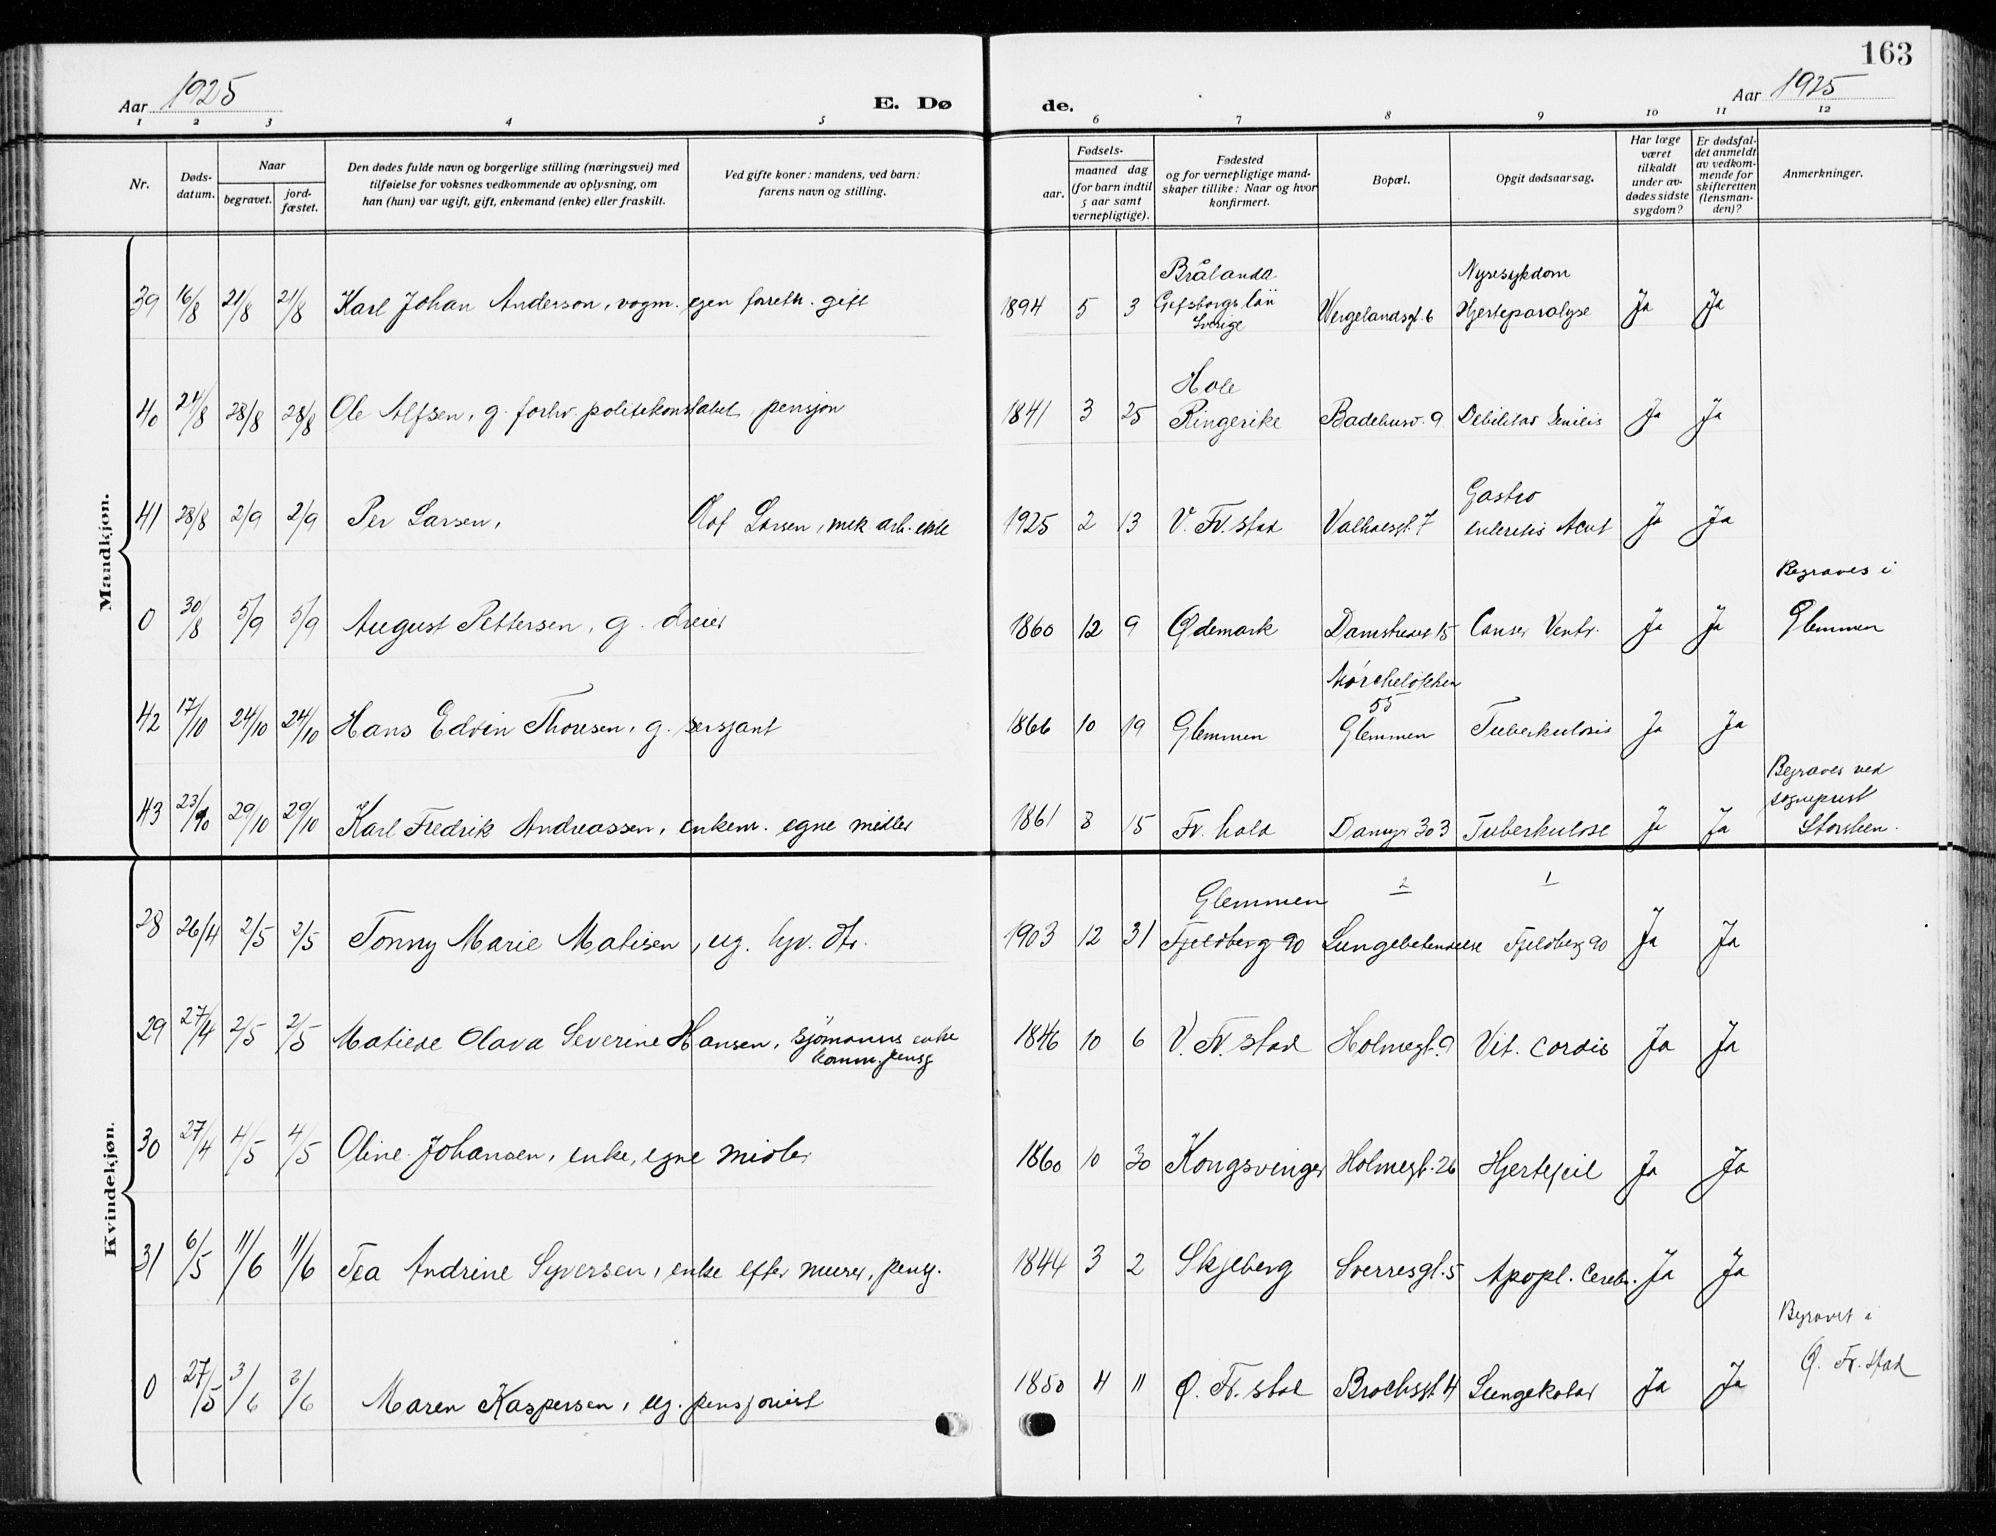 163
Aar 1925
E. Dø
de.
Aar 1925
1 2 3 4 5 6 7 8 9 10 11 12
Nr.
Døds-
datum.
Naar
begravet.
jord-
fæstet.
Den dødes fulde navn og borgerlige stilling (næringsvei) med
tilføielse for voksnes vedkommende av oplysning, om
han (hun) var ugift, gift, enkemand (enke) eller fraskilt.
Ved gifte koner: mandens, ved barn:
farens navn og stilling.
Fødsels-
aar.
maaned dag
(for barn indtil
5 aar samt
vernepligtige).
Fødested
og for vernepligtige mand-
skaper tillike: Naar og hvor
konfirmert.
Bopæl.
Opgit dødsaarsag.
Har læge
været
tilkaldt
under av-
dødes sidste
sygdom?
Er dødsfal-
det anmeldt
av vedkom-
mende for
skifteretten
(lensman-
den)?
Anmerkninger.
Mandkjøn.
39 16/8 21/8 21/8 Karl Johan Anderson, vogm. egen forretn. gift 1894 5 3 Brålanda Elfsborgs län Sverige Wergelandsgt. 6 Nyresykdom Hjerteparalyse Ja Ja
40 24/8 28/8 28/8 Ole Alfsen, g. forhv. politikonstabel, pensjon 1841 3 25 Hole Ringerike Badehusv. 9 Debilitas Senilis Ja Ja
41 28/8 2/9 2/9 Per Larsen, Olof Larsen, mek arb. ekte 1925 2 13 V. Fr. stad Valhalsgt. 7 Gastro enteritis Acut Ja Ja
0 30/8 5/9 5/9 August Pettersen, g. dreier 1860 12 9 Ødemark Damstredet 15 Canser Ventr. Ja Ja Begraves i Glemmen
42 17/10 24/10 24/10 Hans Edvin Thoresen, g. sersjant 1866 10 19 Glemmen Mørcheløkken 55 Glemmen Tuberkulosis Ja Ja
43 23/10 29/10 29/10 Karl Fredrik Andreassen, enkem. egne midler 1861 8 15 Fr. hald Damyr 303 Tuberkulose Ja Ja Begraves ved sogneprest Storsteen.
Kvindekjøn.
28 26/4 2/5 2/5 Tonny Marie Matisen, ug. hjv. dtr. 1903 12 31 Glemmen Fjeldberg 90 2 Lungebetendelse 1 Fjeldberg 90 Ja Ja
29 27/4 2/5 2/5 Matilde Olava Severine Hansen, sjømanns enke komm. pensj 1846 10 6 V. Fr. stad Holmegt. 9 Vit. Cordis Ja Ja
30 27/4 4/5 4/5 Oline Johansen, enke, egne midler 1860 10 30 Kongsvinger Holmegt. 26 Hjertefeil Ja Ja
31 6/5 11/6 11/6 Tea Andrine Syversen, enke efter murer, pensj. 1844 3 2 Skjeberg Sverresgt. 5 Apopl. Cerebr. Ja Ja
0 27/5 3/6 3/6 Maren Kaspersen, ug. pensjonist 1850 4 11 Ø. Fr. stad Brochsgt 4 Lungekatar Ja Ja Begravet i Ø. Fr. stad